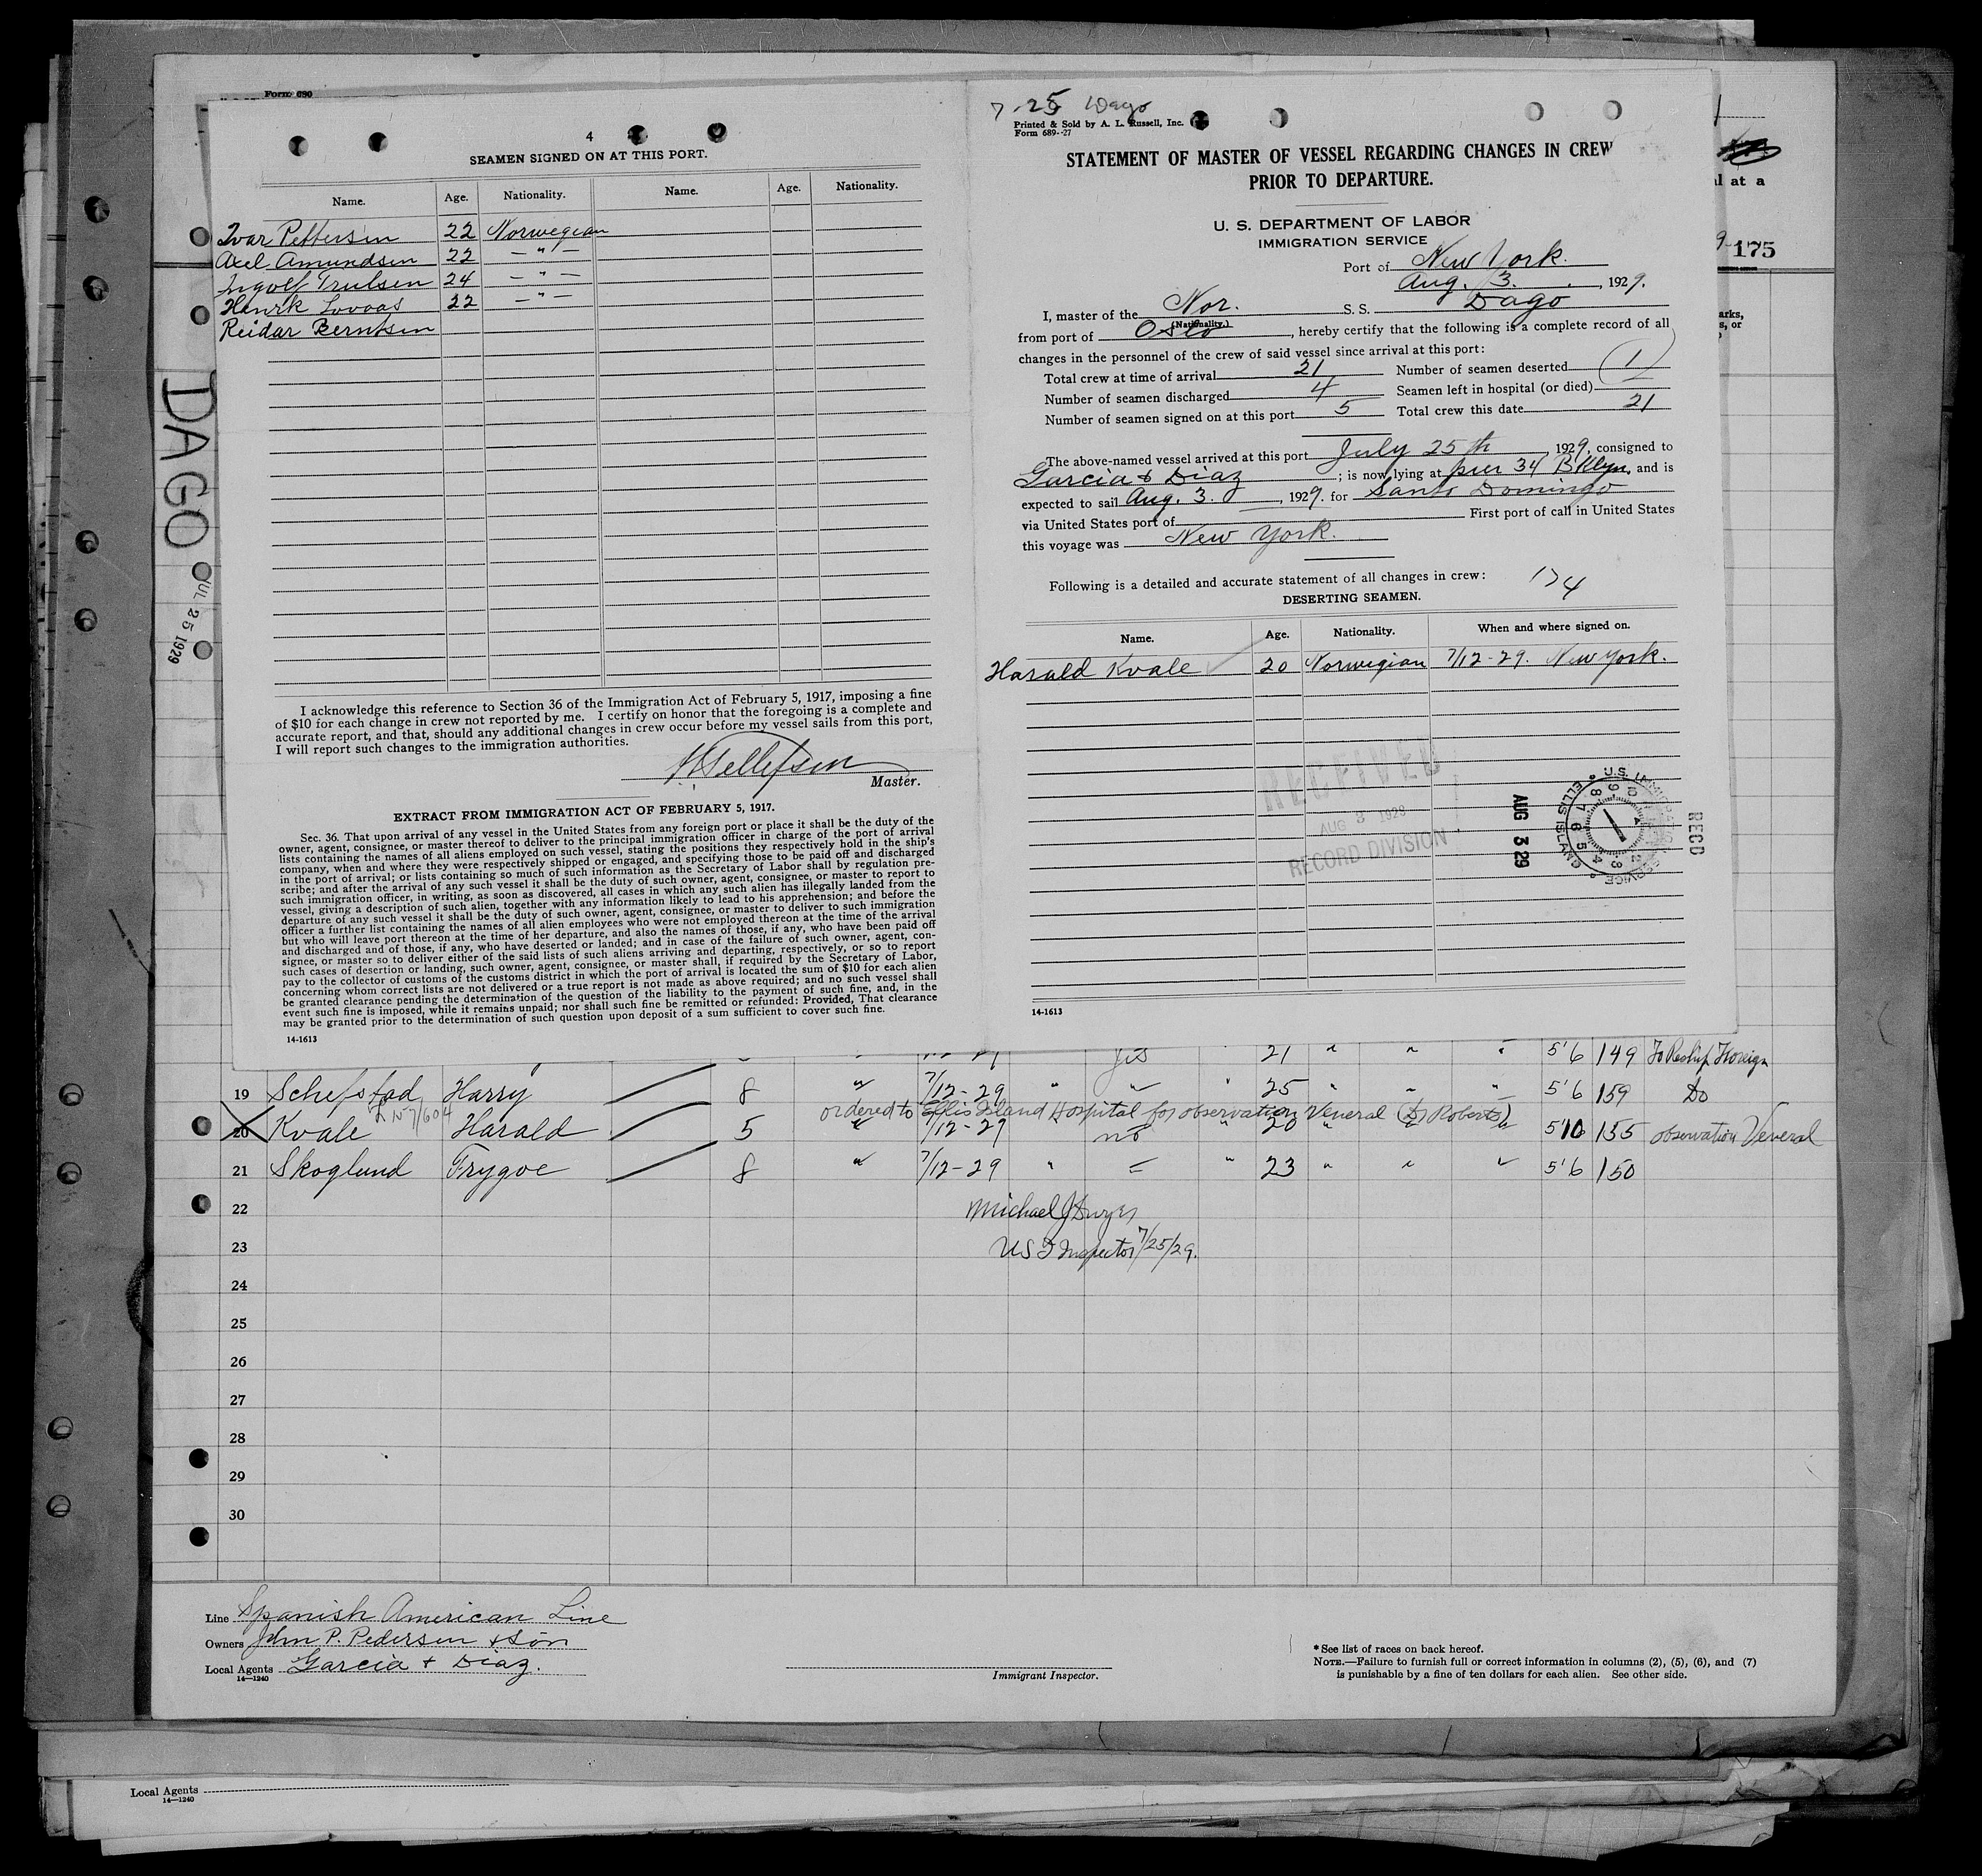 Form 690
4
SEAMEN SIGNED ON AT THIS PORT.
Name. Age. Nationality. Name. Age. Nationality.
Ivar Pettersen 22 Norwegian
Axel Amundsen 22 — " —
Ingolf Trulsen 24 — " —
Henrik Lovaas 22 — " —
Reidar Berntsen
I acknowledge this reference to Section 36 of the Immigration Act of February 5, 1917, imposing a fine
of $10 for each change in crew not reported by me. I certify on honor that the foregoing is a complete and
accurate report, and that, should any additional changes in crew occur before my vessel sails from this port,
I will report such changes to the immigration authorities.
Tellefsen
Master.
EXTRACT FROM IMMIGRATION ACT OF FEBRUARY 5, 1917.
Sec. 36. That upon arrival of any vessel in the United States from any foreign port or place it shall be the duty of the
owner, agent, consignee, or master thereof to deliver to the principal immigration officer in charge of the port of arrival
lists containing the names of all aliens employed on such vessel, stating the positions they respectively hold in the ship's
company, when and where they were respectively shipped or engaged, and specifying those to be paid off and discharged
in the port of arrival; or lists containing so much of such information as the Secretary of Labor shall by regulation pre-
scribe; and after the arrival of any such vessel it shall be the duty of such owner, agent, consignee, or master to report to
such immigration officer, in writing, as soon as discovered, all cases in which any such alien has illegally landed from the
vessel, giving a description of such alien, together with any information likely to lead to his apprehension; and before the
departure of any such vessel it shall be the duty of such owner, agent, consignee, or master to deliver to such immigration
officer a further list containing the names of all alien employees who were not employed thereon at the time of the arrival
but who will leave port thereon at the time of her departure, and also the names of those, if any, who have been paid off
and discharged and of those, if any, who have deserted or landed; and in case of the failure of such owner, agent, con-
signee, or master so to deliver either of the said lists of such aliens arriving and departing, respectively, or so to report
such cases of desertion or landing, such owner, agent, consignee, or master shall, if required by the Secretary of Labor,
pay to the collector of customs of the customs district in which the port of arrival is located the sum of $10 for each alien
concerning whom correct lists are not delivered or a true report is not made as above required; and no such vessel shall
be granted clearance pending the determination of the question of the liability to the payment of such fine, and, in the
event such fine is imposed, while it remains unpaid; nor shall such fine be remitted or refunded: Provided, That clearance
may be granted prior to the determination of such question upon deposit of a sum sufficient to cover such fine.
14-1613
DAGO
JUL 25 1929
7-25 Dago
Printed & Sold by A. L. Russell, Inc.
Form 689--27
STATEMENT OF MASTER OF VESSEL REGARDING CHANGES IN CREW
PRIOR TO DEPARTURE.
U. S. DEPARTMENT OF LABOR
IMMIGRATION SERVICE
Port of New York.
Aug. 3., 1929.
I, master of the Nor. S. S. Dago
(Nationality.)
from port of Oslo, hereby certify that the following is a complete record of all
changes in the personnel of the crew of said vessel since arrival at this port:
Total crew at time of arrival 21 Number of seamen deserted 1
Number of seamen discharged 4 Seamen left in hospital (or died)
Number of seamen signed on at this port 5 Total crew this date 21
The above-named vessel arrived at this port July 25th, 1929, consigned to
Garcia & Diaz; is now lying at pier 34 Bklyn, and is
expected to sail Aug. 3., 1929. for Santo Domingo
via United States port of First port of call in United States
this voyage was New York.
Following is a detailed and accurate statement of all changes in crew: 174
DESERTING SEAMEN.
Name. Age. Nationality. When and where signed on.
Harald Kvale 20 Norwegian 7/12-29. New York.
RECEIVED
AUG 3 1929
RECORD DIVISION
AUG 3 29
U.S. IMMIGRATION SERVICE ELLIS ISLAND
RECD
14-1613
al at a
175
arks,
s, or
7/12-29 yes 21 " " " 5'6 149 To Reship Foreign
19 Schefstad Harry 8 " 7/12-29 " " " 25 " " " 5'6 159 Do
ordered to Ellis Island Hospital for observation Veneral (Dr Roberts)
20 Kvale Harald 5 " 7/12-29 " no " 20 " " " 5'10 155 observation Veneral
21 Skoglund Trygve 8 " 7/12-29 " = " 23 " " " 5'6 150
22 Michael J Dwyer
23 US I Inspector 7/25/29.
24
25
26
27
28
29
30
Line Spanish American Line
Owners John P. Pedersen & Son
Local Agents Garcia & Diaz.
14—1240
Immigrant Inspector.
*See list of races on back hereof.
NOTE.—Failure to furnish full or correct information in columns (2), (5), (6), and (7)
is punishable by a fine of ten dollars for each alien. See other side.
Local Agents
14—1240